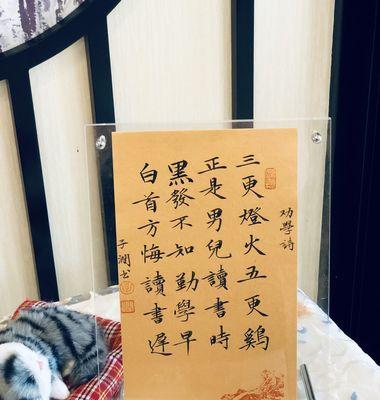 劝學詩
三更燈火五更鷄
正是男兒讀書時
黑發不知勤學早
白首方悔讀書遲
子潤书